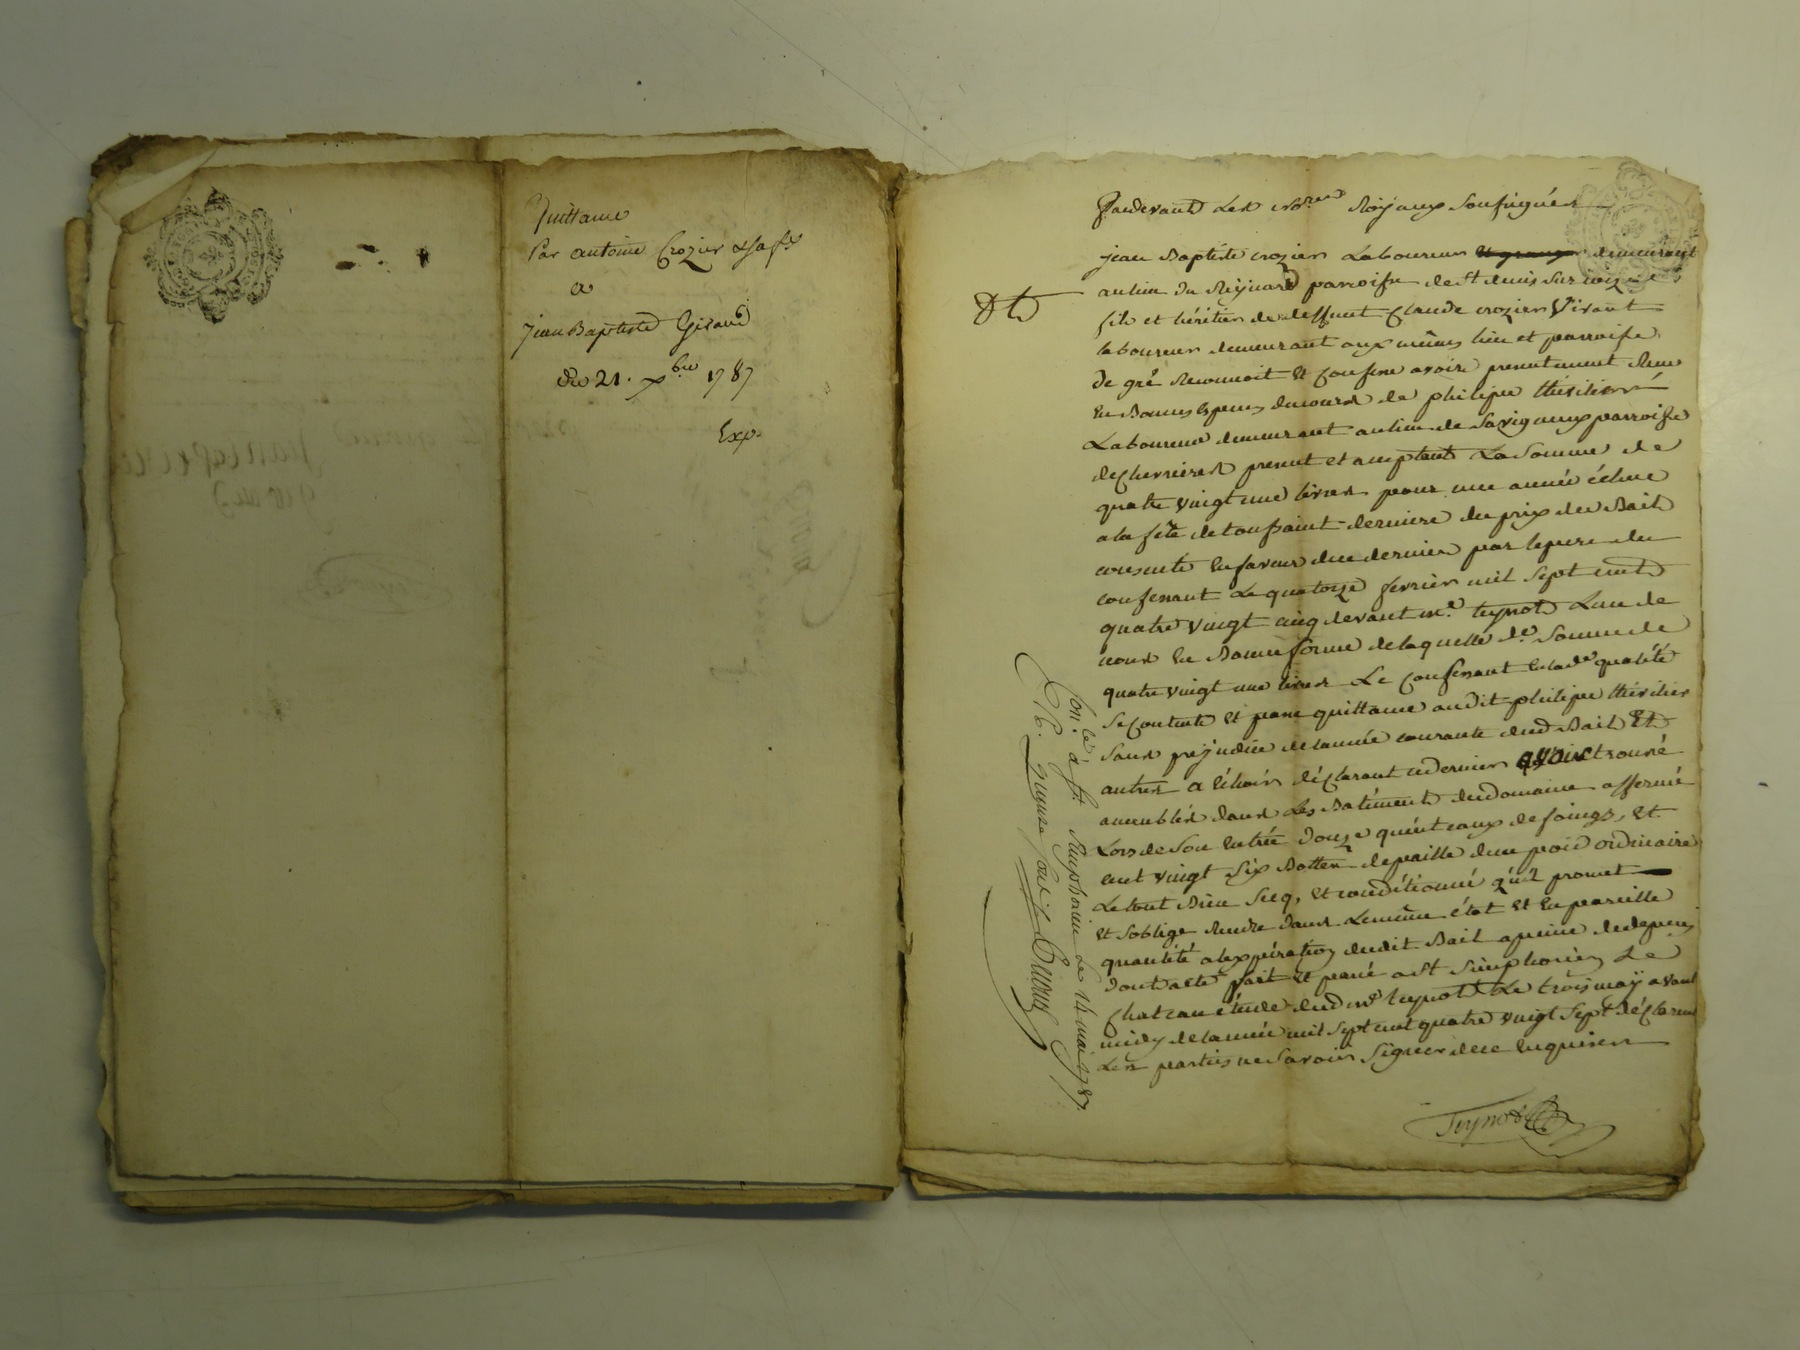 Quittance
Par antoine Crozier & sa fe
a
jean Baptiste Giraud
du 21. xbre 1787
Exp.
Pardevant les nores Royaux soussignés
jean Baptiste crozier Laboureur et granger demeurant
au lieu du Reynard parroisse de st denis sur coize
fils et héritier de deffunt Claude crozier Vivant
laboureur demeurant aux mêmes lieu et parroisse
De gré Reconnoit et Confesse avoir presentement Reçu
En Bonnes Especes du cours de philipe thévilier
Laboureur demeurant au lieu de Savigneux parroisse
de Chevrieres present et acceptant La Somme de
quatre vingt une livres pour une année échue
a la fête de toussaint derniere du prix du Bail
consenti En faveur de ce dernier par le pere du
confessant Le quatorze fevrier mil sept cent
quatre vingt cinq devant me. teynot L'un de
nous En Bonne forme de laquelle de. Somme de
quatre vingt une livres Le Confessant En lade qualité
Se Contente Et passe quittance audit philipe thévilier
Sans préjudice de l'année courante dud Bail Et
autres a Echoir déclarant ce dernier avoir trouvé
accumblés dans Les Batiments du domaine affermé
Lors de Son Entrée Douze quinteaux de foings, Et
cent vingt Six Bottes de paille d'un poid ordinaire
Le tout Bien Secq, Et conditionné qu'il promet
Et S'oblige Rendre dans Le même état Et En pareille
quantité a l'expiration dudit Bail a peine de depens
Dont acte fait Et passé a St Simphorien Le
Chateau étude dud me teynot Le trois may avant
midy de l'année mil sept cent quatre vingt Sept déclarant
Les parties ne Savoir Signer de ce Enquises
Teynot
Con.lé à St. Simphorien Le 14 mai 1787.
R. quinze sous